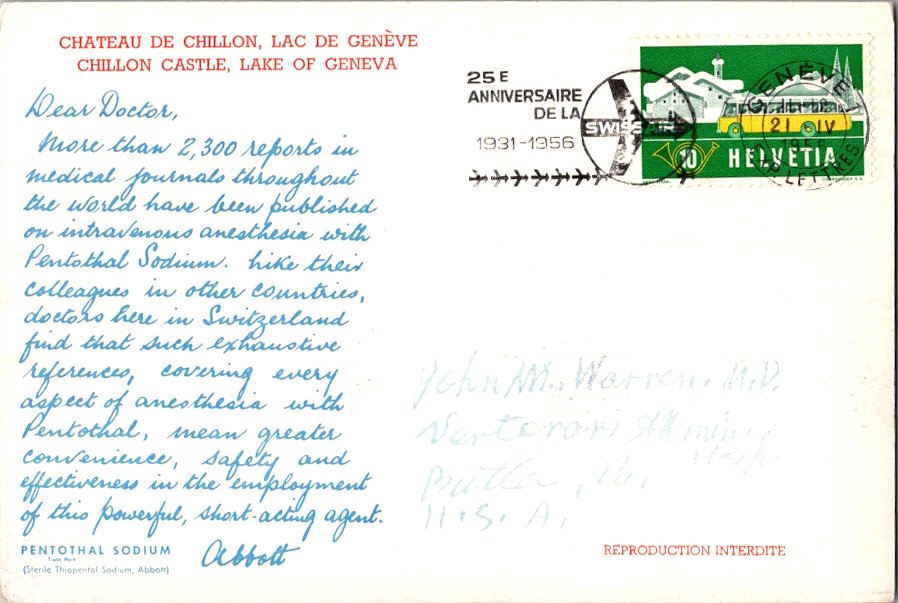 CHATEAU DE CHILLON, LAC DE GENÈVE
CHILLON CASTLE, LAKE OF GENEVA
Dear Doctor,
More than 2,300 reports in
medical journals throughout
the world have been published
on intravenous anesthesia with
Pentothal Sodium. Like their
colleagues in other countries,
doctors here in Switzerland
find that such exhaustive
references, covering every
aspect of anesthesia with
Pentothal, mean greater
convenience, safety and
effectiveness in the employment
of this powerful, short-acting agent.
Abbott
PENTOTHAL SODIUM
Trade Mark
(Sterile Thiopental Sodium, Abbott)
25E
ANNIVERSAIRE
DE LA
SWISSAIR
1931-1956
GENÈVE 1
21 IV
1956
LETTRES
10 HELVETIA
John M. Warren, M.D.
Admin.
Hosp.
Butler, Pa.
U.S.A.
REPRODUCTION INTERDITE